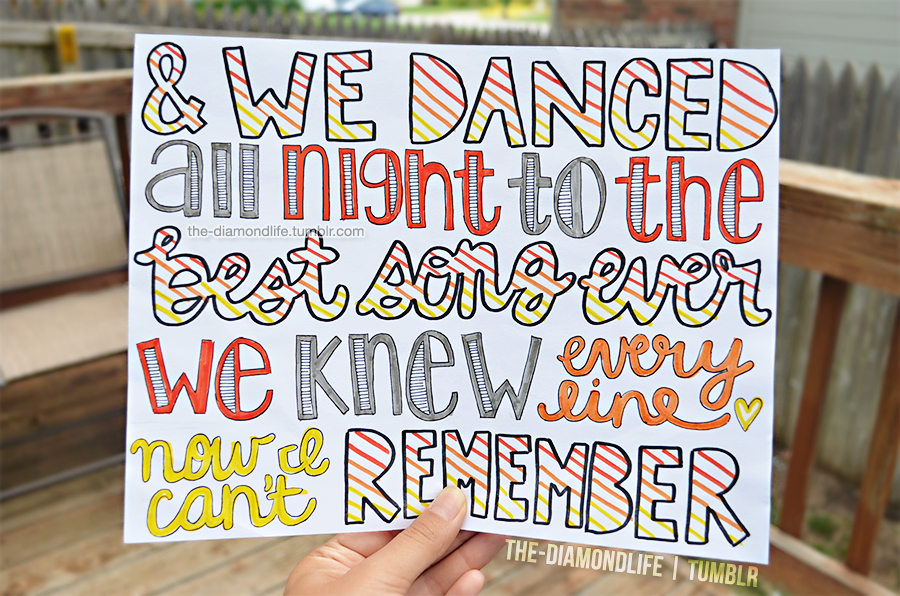 & WE DANCED
all night to the
the-diamondlife.tumblr.com
best song ever
we knew every
line
now I
can't REMEMBER
THE-DIAMONDLIFE | TUMBLR